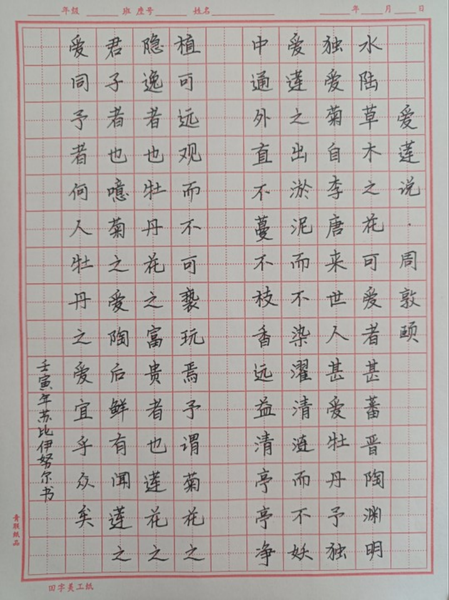 年级 班 座号 姓名 年 月 日
爱莲说·周敦颐
水陆草木之花可爱者甚蕃晋陶渊明
独爱菊自李唐来世人甚爱牡丹予独
爱莲之出淤泥而不染濯清涟而不妖
中通外直不蔓不枝香远益清亭亭净
植可远观而不可亵玩焉予谓菊花之
隐逸者也牡丹花之富贵者也莲花之
君子者也噫菊之爱陶后鲜有闻莲之
爱同予者何人牡丹之爱宜乎众矣
壬寅年苏比伊努尔书
田字美工纸